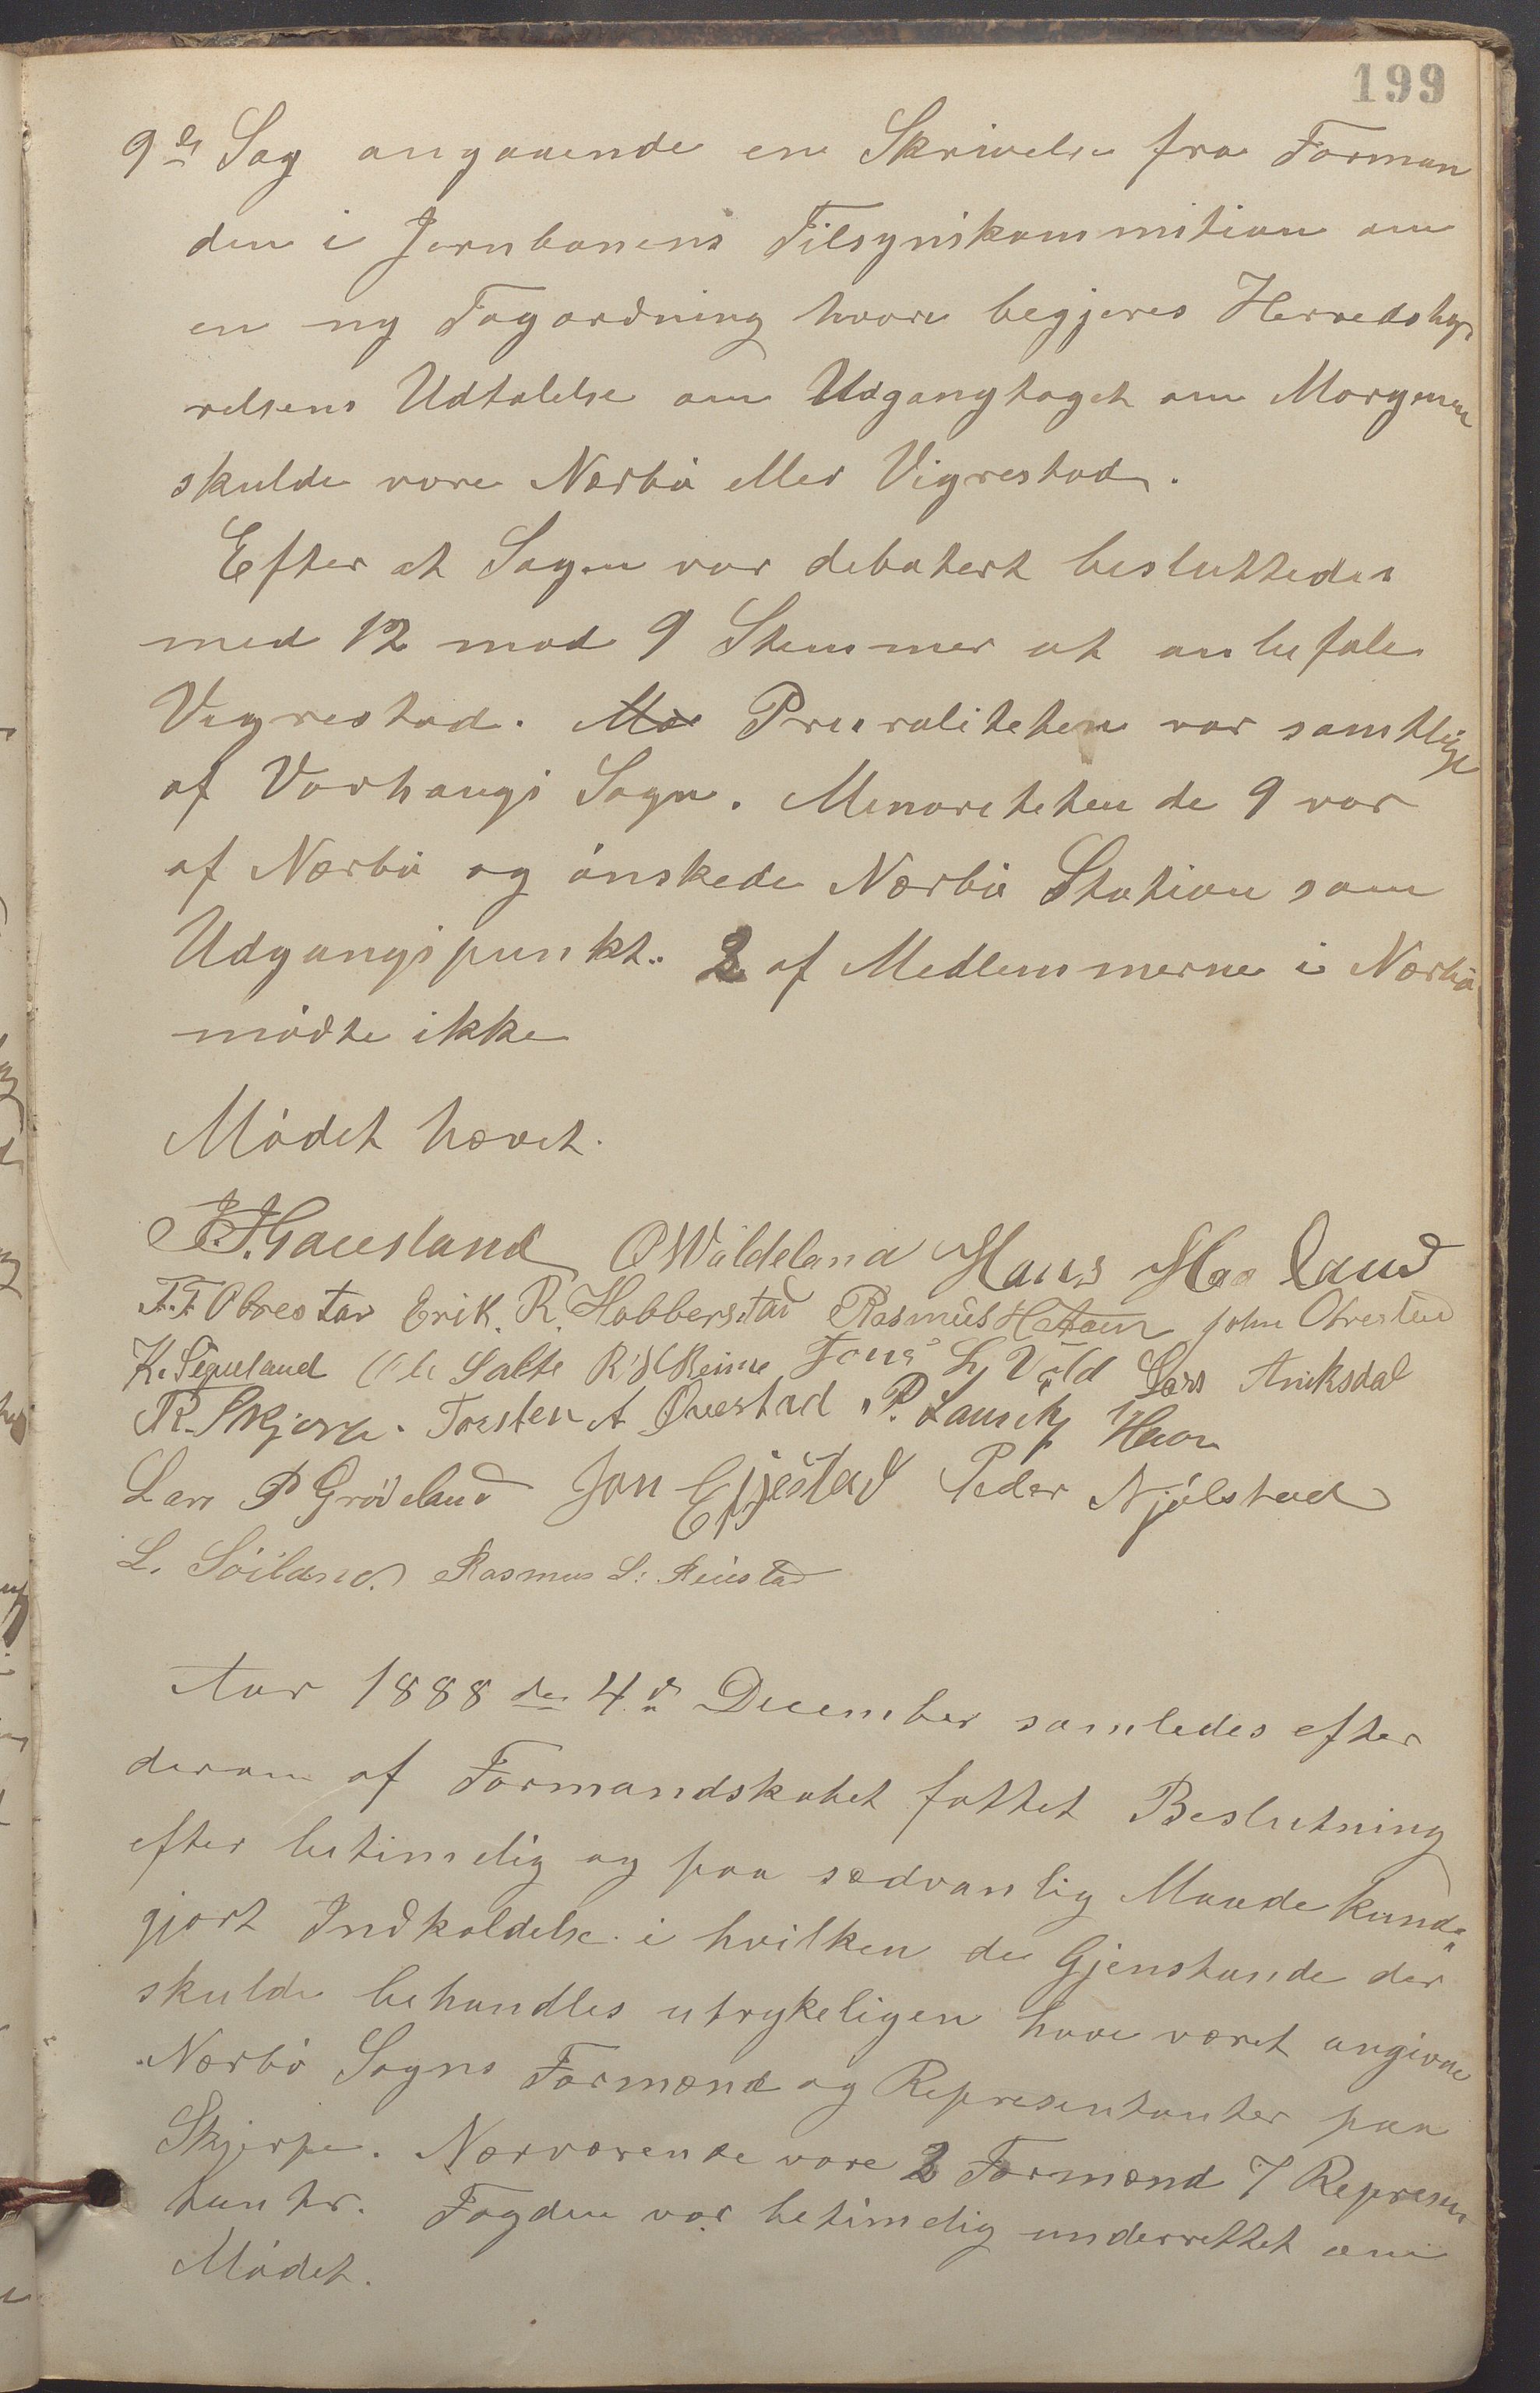 199
9de Sag angaaende en Skrivelse fra Forman
den i Jernbanens Tilsynskommition om
en ny Togordning hvori begjeres Herredsty,
relsens Udtalelse om Udgangtoget om Morgenen
skulde vore Nærbø eller Vigrestad.
Efter at Sagen var debatert besluttedes
med 12 mod 9 Stemmer at anbefale
Vigrestad. Ma Pruraliteten var samtlige
af Varhaugs Sogn. Menoreteten de 9 var
af Nærbø og ønskede Nærbø Station som
Udgangspunkt. 2 af Medlemmerne i Nærbø
mødte ikke
Mødet hævet.
J. J. Hauesland O Waldeland Hans Haaland
T. T. Obrestad Erik. R. Hobberstad Rasmus H John Obrestad
K. Sigueland Ole Salte R Reime Tons L Vold Lars Aniksdal
R. Skjerpe. Torsten A Qvestad P. Lauritz Haar
Lars P Grødeland Jon Eigestad Peder Njølstad
L. Söiland. Rasmus S. Reiestad
Aar 1888 den 4de December samledes efter
derom af Formandskabet fattet Beslutning
efter betimelig og paa sædvanlig Maade kund„
gjort Indkaldelse i hvilken de Gjenstande der
skulde behandles utrykeligen have været angivne
Nærbø Sogns Formænd og Representanter paa
Skjerpe. Nærværende vare 2 Formænd 7 Represen
tanter. Fogden var betimelig underrettet om
Mødet.